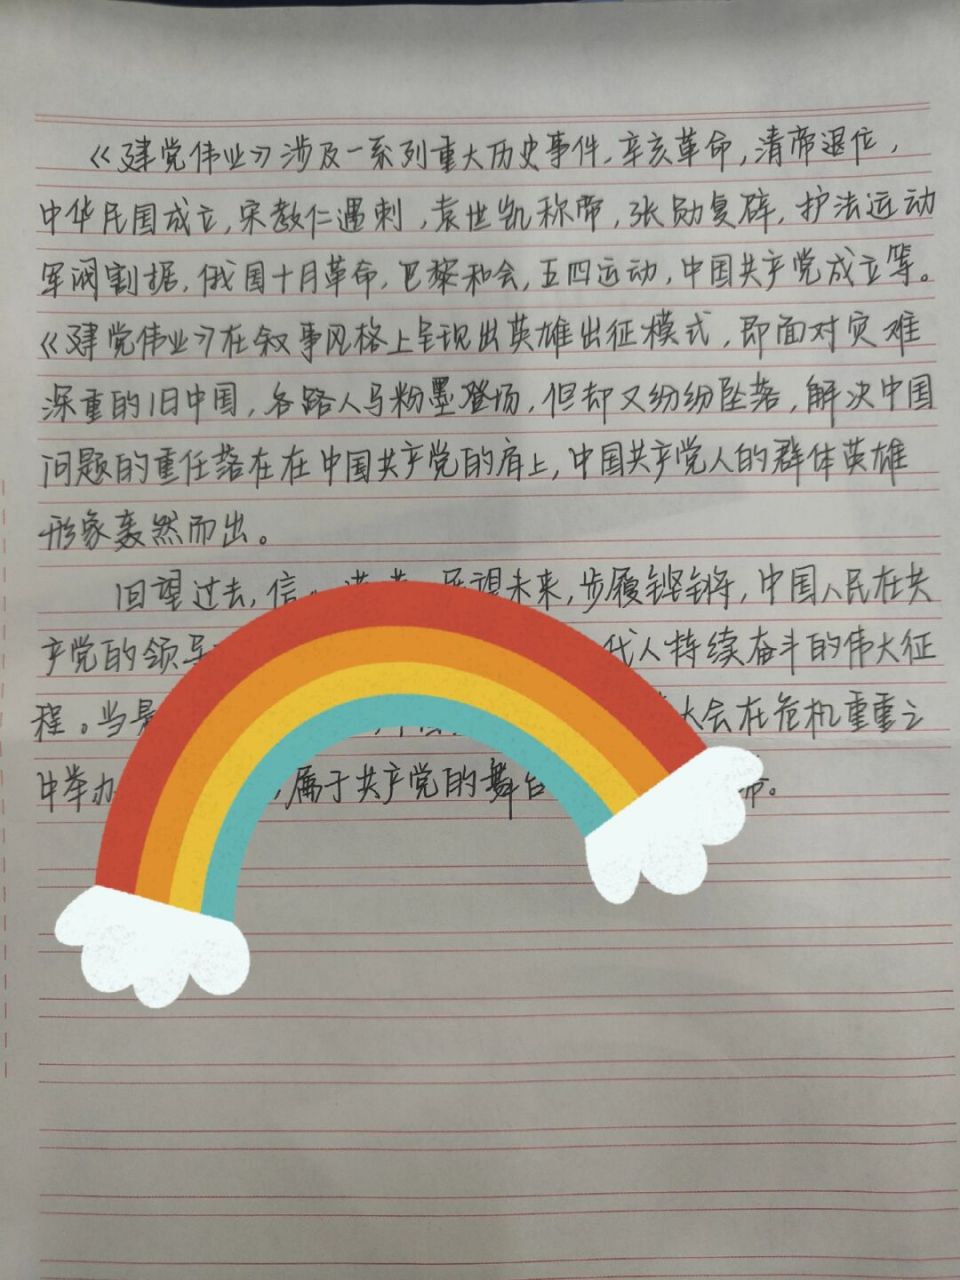 《建党伟业》涉及一系列重大历史事件，辛亥革命，清帝退位，
中华民国成立，宋教仁遇刺，袁世凯称帝，张勋复辟，护法运动
军阀割据，俄国十月革命，巴黎和会，五四运动，中国共产党成立等。
《建党伟业》在叙事风格上呈现出英雄出征模式，即面对灾难
深重的旧中国，各路人马粉墨登场，但却又纷纷坠落，解决中国
问题的重任落在在中国共产党的肩上，中国共产党人的群体英雄
形象轰然而出。
回望过去，信 望未来，步履铿锵，中国人民在共
产党的领导 代人持续奋斗的伟大征
程。当 大会在危机重重之
中举办 属于共产党的舞台